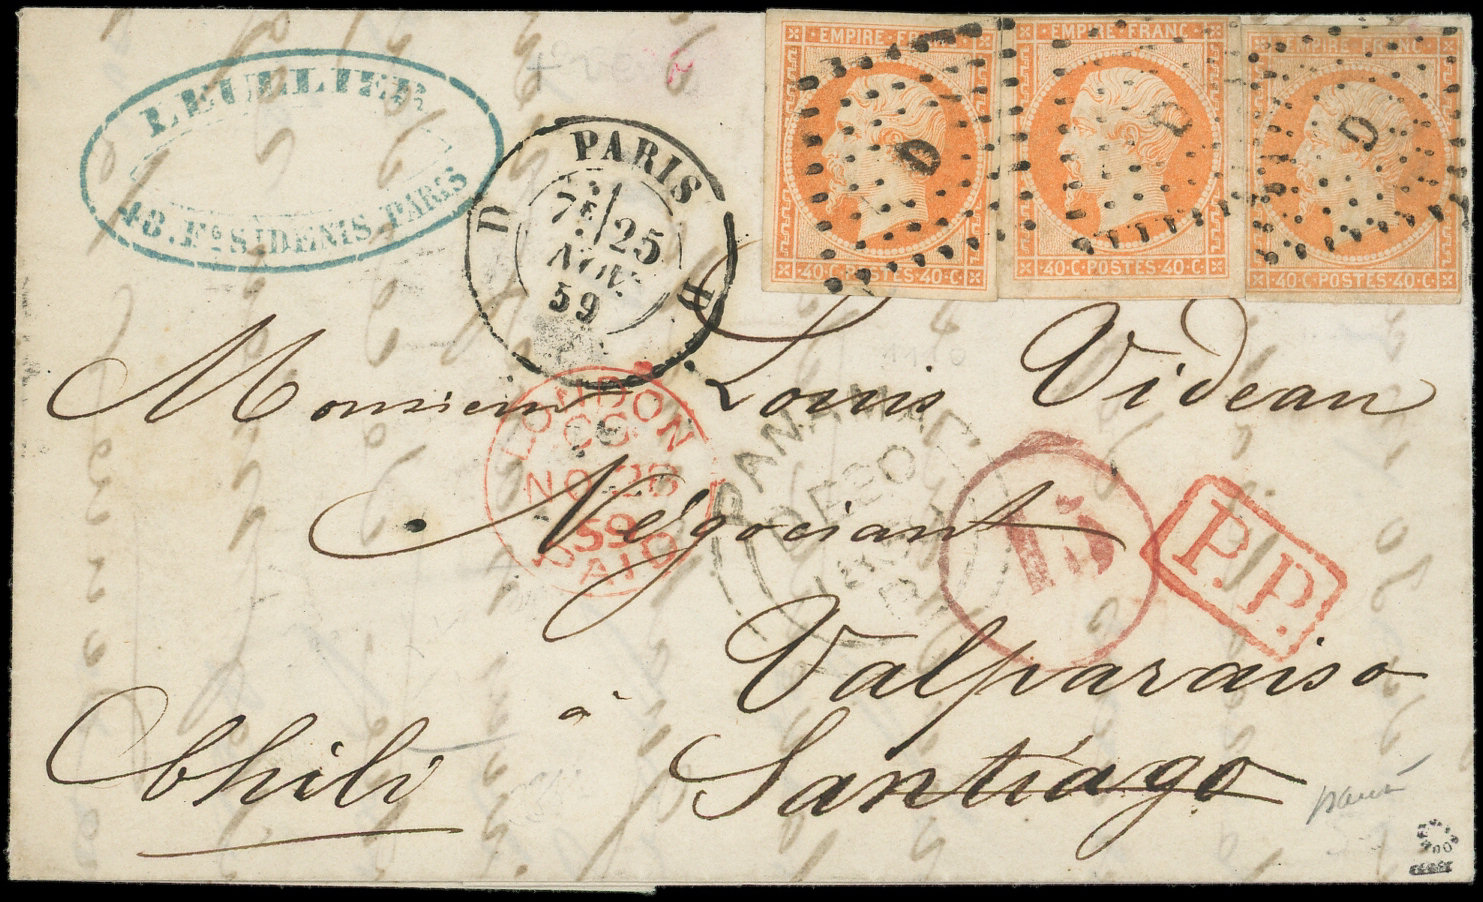 LEUILLIER
48. Fg St DENIS. PARIS
EMPIRE FRANC
40·C·POSTES·40·C·
EMPIRE FRANC
40·C·POSTES·40·C·
EMPIRE FRANC
40·C·POSTES·40·C·
D
D
D
PARIS
D
7E 25
NOV.
59
D
Monsieur Louis Videau
LONDON
CG
NO 28
59
PAID
PANAMA
DE 20
Négociant
15
P.P.
Valparaiso
Chili à Santiago